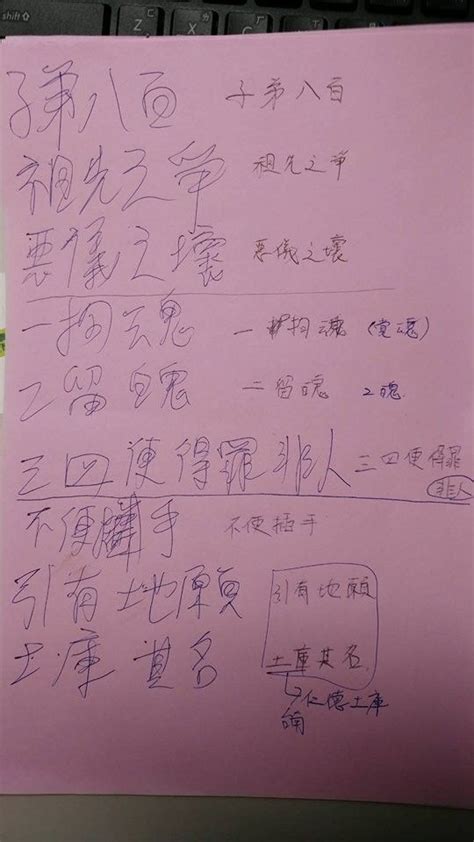 shift Z X C V
子弟八百 子弟八百
祖先之爭 祖先之爭
惡儀之壞 惡儀之壞
一拘魂 一拘魂 (覚魂)
2留魄 二留魄 2魄
三四便得罪非人 三四便得罪
非人
不便插手 不便插手
引有地願 引有地願
土庫其名 土庫其名
仁德土庫
台南